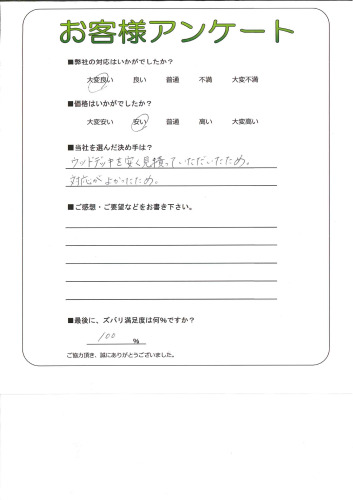 お客様アンケート
■弊社の対応はいかがでしたか？
大変良い 良い 普通 不満 大変不満
■価格はいかがでしたか？
大変安い 安い 普通 高い 大変高い
■当社を選んだ決め手は？
ウッドデッキを安く見積って、いただいたため。
対応がよかったため。
■ご感想・ご要望などをお書き下さい。
■最後に、ズバリ満足度は何%ですか？
100 %
ご協力頂き、誠にありがとうございました。